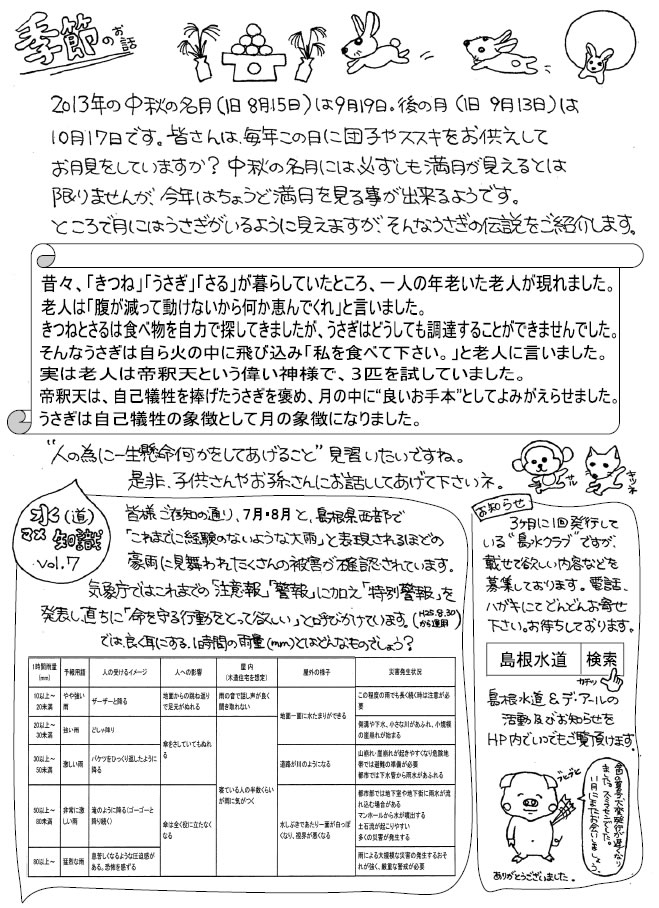 季節のお話
2013年の中秋の名月(旧 8月15日)は9月19日。後の月(旧 9月13日)は
10月17日です。皆さんは、毎年この日に団子やススキをお供えして
お月見をしていますか？中秋の名月には必ずしも満月が見えるとは
限りませんが、今年はちょうど満月を見る事が出来るようです。
ところで月にはうさぎがいるように見えますが、そんなうさぎの伝説をご紹介します。
昔々、「きつね」「うさぎ」「さる」が暮らしていたところ、一人の年老いた老人が現れました。
老人は「腹が減って動けないから何か恵んでくれ」と言いました。
きつねとさるは食べ物を自力で探してきましたが、うさぎはどうしても調達することができませんでした。
そんなうさぎは自ら火の中に飛び込み「私を食べて下さい。」と老人に言いました。
実は老人は帝釈天という偉い神様で、3匹を試していました。
帝釈天は、自己犠牲を捧げたうさぎを褒め、月の中に“良いお手本”としてよみがえらせました。
うさぎは自己犠牲の象徴として月の象徴になりました。
“人の為に一生懸命何かをしてあげること”見習いたいですね。
是非、子供さんやお孫さんにお話してあげて下さいネ。
サル
キツネ
水(道)
マメ知識
vol.7
皆様ご存知の通り、7月・8月と、島根県西部で
「これまでに経験のないような大雨」と表現されるほどの
豪雨に見舞われたくさんの被害が確認されています。
気象庁ではこれまでの「注意報」「警報」に加え「特別警報」を
発表し直ちに「命を守る行動をとって欲しい」と呼びかけています。(H25.8.30から運用)
では、良く耳にする、1時間の雨量(mm)とはどんなものでしょう？
1時間雨量(mm) 予報用語 人の受けるイメージ 人への影響 屋内(木造住宅を想定) 屋外の様子 災害発生状況
10以上～20未満 やや強い雨 ザーザーと降る 地面からの跳ね返りで足元がぬれる 雨の音で話し声が良く聞き取れない 地面一面に水たまりができる この程度の雨でも長く続く時は注意が必要
20以上～30未満 強い雨 どしゃ降り 傘をさしていてもぬれる 寝ている人の半数くらいが雨に気がつく 側溝や下水、小さな川があふれ、小規模の崖崩れが始まる
30以上～50未満 激しい雨 バケツをひっくり返したように降る 道路が川のようになる 山崩れ・崖崩れが起きやすくなり危険地帯では避難の準備が必要
都市では下水管から雨水があふれる
50以上～80未満 非常に激しい雨 滝のように降る(ゴーゴーと降り続く) 傘は全く役に立たなくなる 水しぶきであたり一面が白っぽくなり、視界が悪くなる 都市部では地下室や地下街に雨水が流れ込む場合がある
マンホールから水が噴出する
土石流が起こりやすい
多くの災害が発生する
80以上～ 猛烈な雨 息苦しくなるような圧迫感がある。恐怖を感ずる 雨による大規模な災害の発生するおそれが強く、厳重な警戒が必要
お知らせ
3ヶ月に1回発行して
いる“島水クラブ”ですが、
載せて欲しい内容などを
募集しております。電話、
ハガキにてどんどんお寄せ
下さい。お待ちしております。
島根水道 検索
カチッ
島根水道＆デ・アールの
活動及びお知らせを
HP内でいつでもご覧頂けます。
ブヒブヒ
今回の夏号、大変発行が遅くなり
ました。スイマセンでした。
11月にまたお会いしましょう。
ありがとうございました。